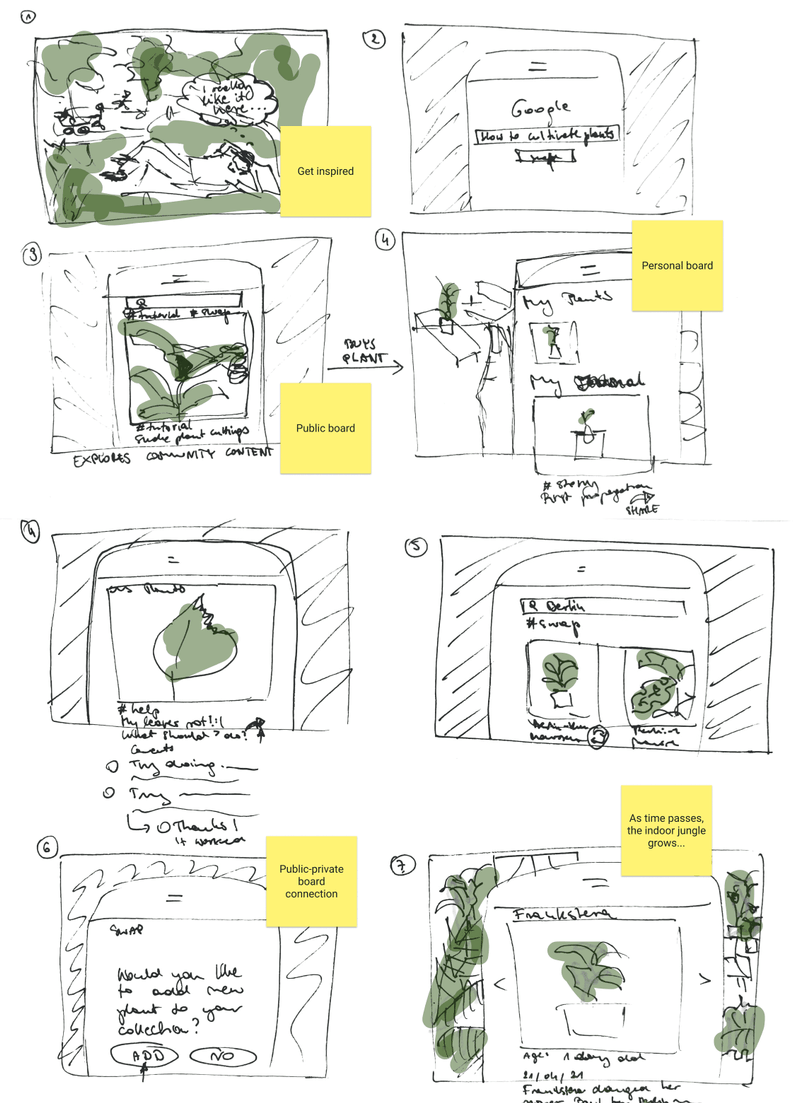 1
I really
like it
here...
Get inspired
2
Google
How to cultivate plants
3
#tutorial #swap
#tutorial
plant cuttings
EXPLORES COMMUNITY CONTENT
Public board
BUYS
PLANT
4
Personal board
My Plants
My
#story
First propagation
SHARE
4
Plants
#help
My leaves rot!:(
What should I do?
Try doing
Try
Thanks!
It worked
5
Berlin
#swap
6
Public-private
board
connection
SWAP
Would you like
to add new
plant to your
collection?
ADD NO
As time passes,
the indoor jungle
grows...
7
<
>
Age: 1 day old
21/04/21
changed her